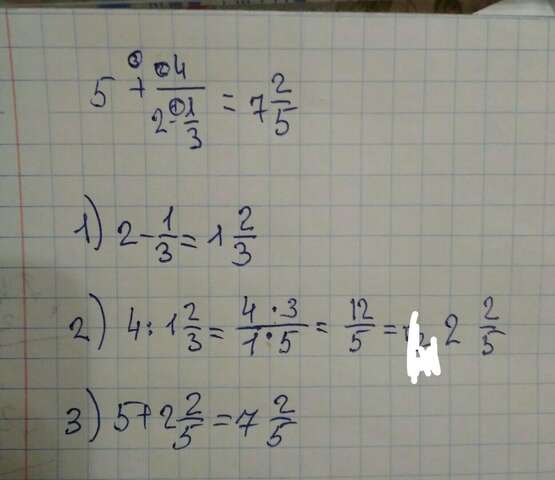 5 + 4/(2 - 1/3) = 7 2/5
1) 2 - 1/3 = 1 2/3
2) 4 : 1 2/3 = 4·3/1·5 = 12/5 = 2 2/5
3) 5 + 2 2/5 = 7 2/5